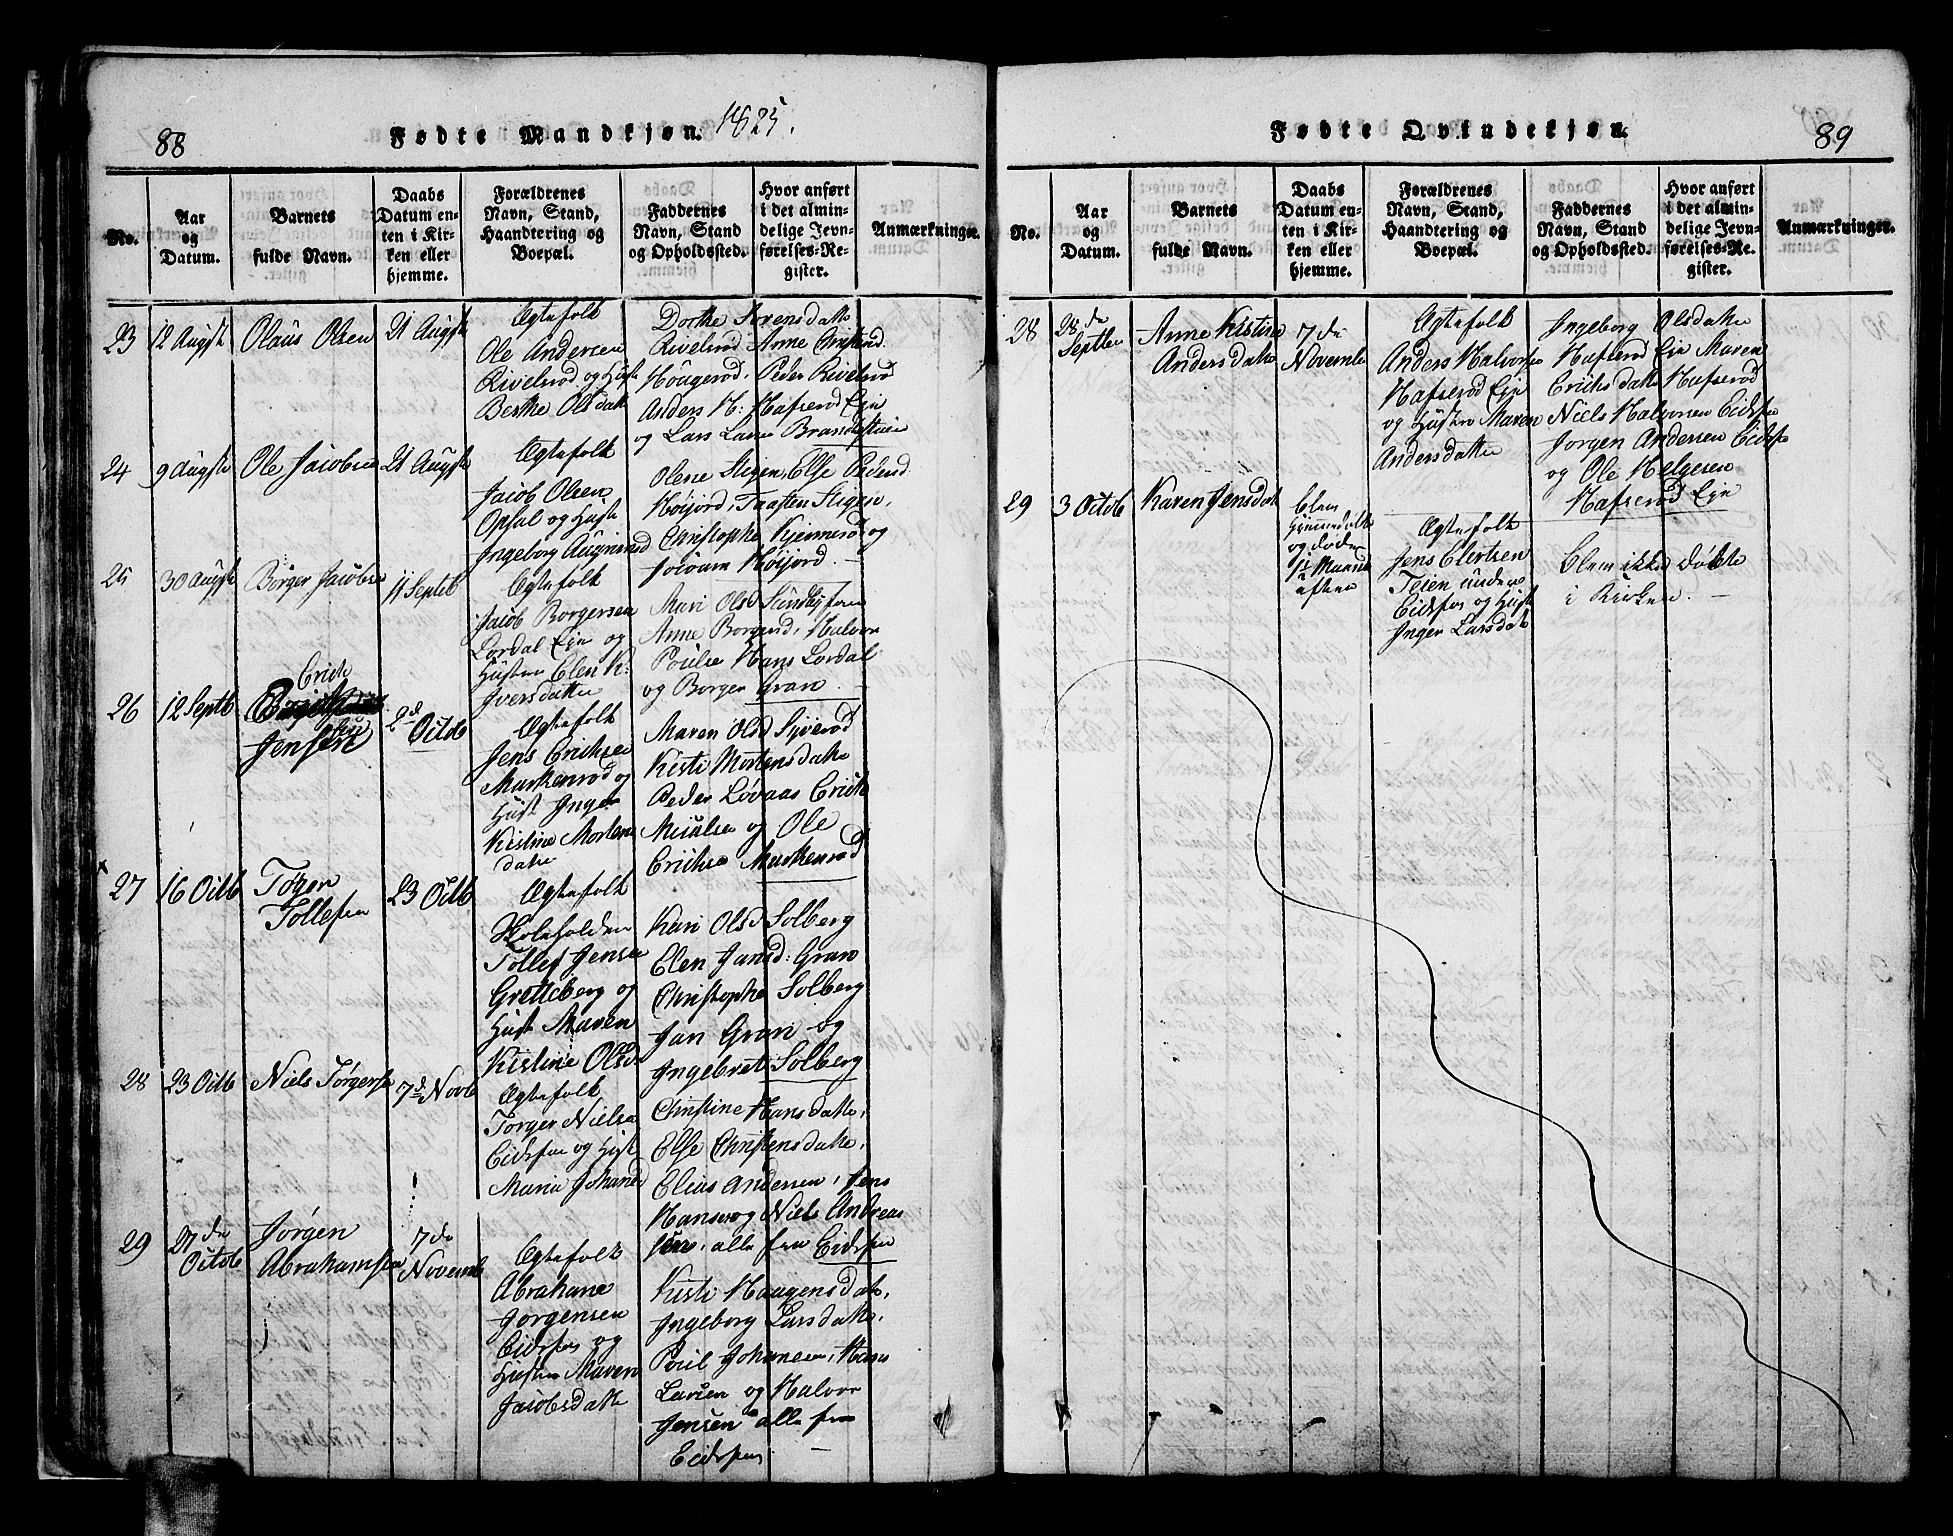 88
Fødte Mandkjøn. 1825.
No.
Aar
og
Datum.
Barnets
fulde Navn.
Daabs
Datum en-
ten i Kir-
ken eller
hjemme.
Forældrenes
Navn, Stand,
Haandtering og
Boepæl.
Faddernes
Navn, Stand
og Opholdssted.
Hvor anført
i det almin-
delige Jevn-
førelses-Re-
gister.
Anmærkninger.
23
12 Augst
Olaus Olsen
21 Augst
Ægtefolk
Ole Andersen
Rivelsrød og Hust
Berthe Olsdatt
Dorthe Sørensdatte
Rivelsrød, Anne Christensd
Høugerød, Peder Rivelsrød
Anders H: Hafserød Eje
og Lars Larsen Brandstuen
24
9 Augst
Ole Jacobsen
21 Augst
Ægtefolk
Jacob Olsen
Opsal og Hust
Ingeborg
Olene Stigen, Else Pedersd
Høijord, Taasten Stigen,
Christopher Kjennerød og
Høijord. —
25
30 Augst
Børger Jacobsen
11 Septb
Ægtefolk
Jacob Borgersen
Lordal Eje og
Hustru Elen K:
Iversdatter
Mari Olsd Sundby
Anne Borgersd, Halvor
Poulse Hans Lordal
og Borger Gran. —
26
12 Septb
Erich
Jensen
2de
Octb
Ægtefolk
Jens Erichsen
Markenrød og
Hust Inger
Kistine Mortens
datter
Maren Olsd Syverød
Kisti Mortensdatte
Peder Løvaas Erich
og Ole
Erichse Markenrød
27
16 Octb
Tøger
Tollefsen
23 Octb
Ægtefolk
Skoleholder
Tollef Jensen
Gretteberg og
Hust Maren
Kistine Olsd
Kari Olsd Solberg
Elen Jansd: Gran
Christopher Solberg
Jan Gran og
Ingebret Solberg
28
23 Octb
Niels Tørgersen
7de Novb
Ægtefolk
Torger Nielsen
Eidsfos og Hust
Maria Johansd
Christine Hansdatte,
Else Christensdatte,
Elias Andersen, Jens
Hansen og Niels Andreas
sen, alle fra Eidsfos
29
27 de
Octob
Jørgen
Abrahamsen
7 de
Novemb
Ægtefolk
Abraham
Jorgensen
Eidsfos og
Hustru Maren
Jacobsdatte
Kisti Haagensdatte,
Ingeborg Larsdatte,
Poul Johansen, Hans
Larsen og Halvor
Jensen alle fra
Eidsfos. —
89
Fødte Qvindekjøn.
No.
Aar
og
Datum.
Barnets
fulde Navn.
Daabs
Datum en-
ten i Kir-
ken eller
hjemme.
Forældrenes
Navn, Stand,
Haandtering og
Boepæl.
Faddernes
Navn, Stand
og Opholdssted.
Hvor anført
i det almin-
delige Jevn-
førelses-Re-
gister.
Anmærkninger.
28
28 de
Septbr
Anne Kistine
Andersdatte
7 de
Novembr
Ægtefolk
Anders Halvorsen
Hafserød Eje
og Hustru Maren
Andersdatter
Ingeborg Olsdatter
Hafserød Eje Maren
Erichsdatte Hafserød
Niels Halvorsen Eidsfos
Jorgen Andersen Eidsfos
og Ole Helgesen
Hafserød Eje
29
3 Octob
Karen Jensdatte
blev
hjemmedøbt
og døde
1/2 Maaned
efter
Ægtefolk
Jens Ellertsen
Teien under
Eidsfos og Hust
Inger Larsdatte
Blev ikke døbte
i Kirken. —